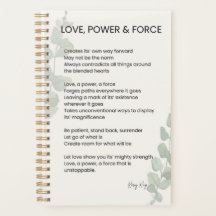 LOVE, POWER & FORCE
Creates its' own way forward
May not be the norm
Always contradicts all things around
the blended hearts
Love, a power, a force
Forges paths everywhere it goes
leaving a mark of its' existence
wherever it goes
Takes unconventional ways to display
its' magnificence
Be patient, stand back, surrender
Let go of what is
Create room for what will be
Let love show you its' mighty strength
Love, a power, a force that is
unstoppable.